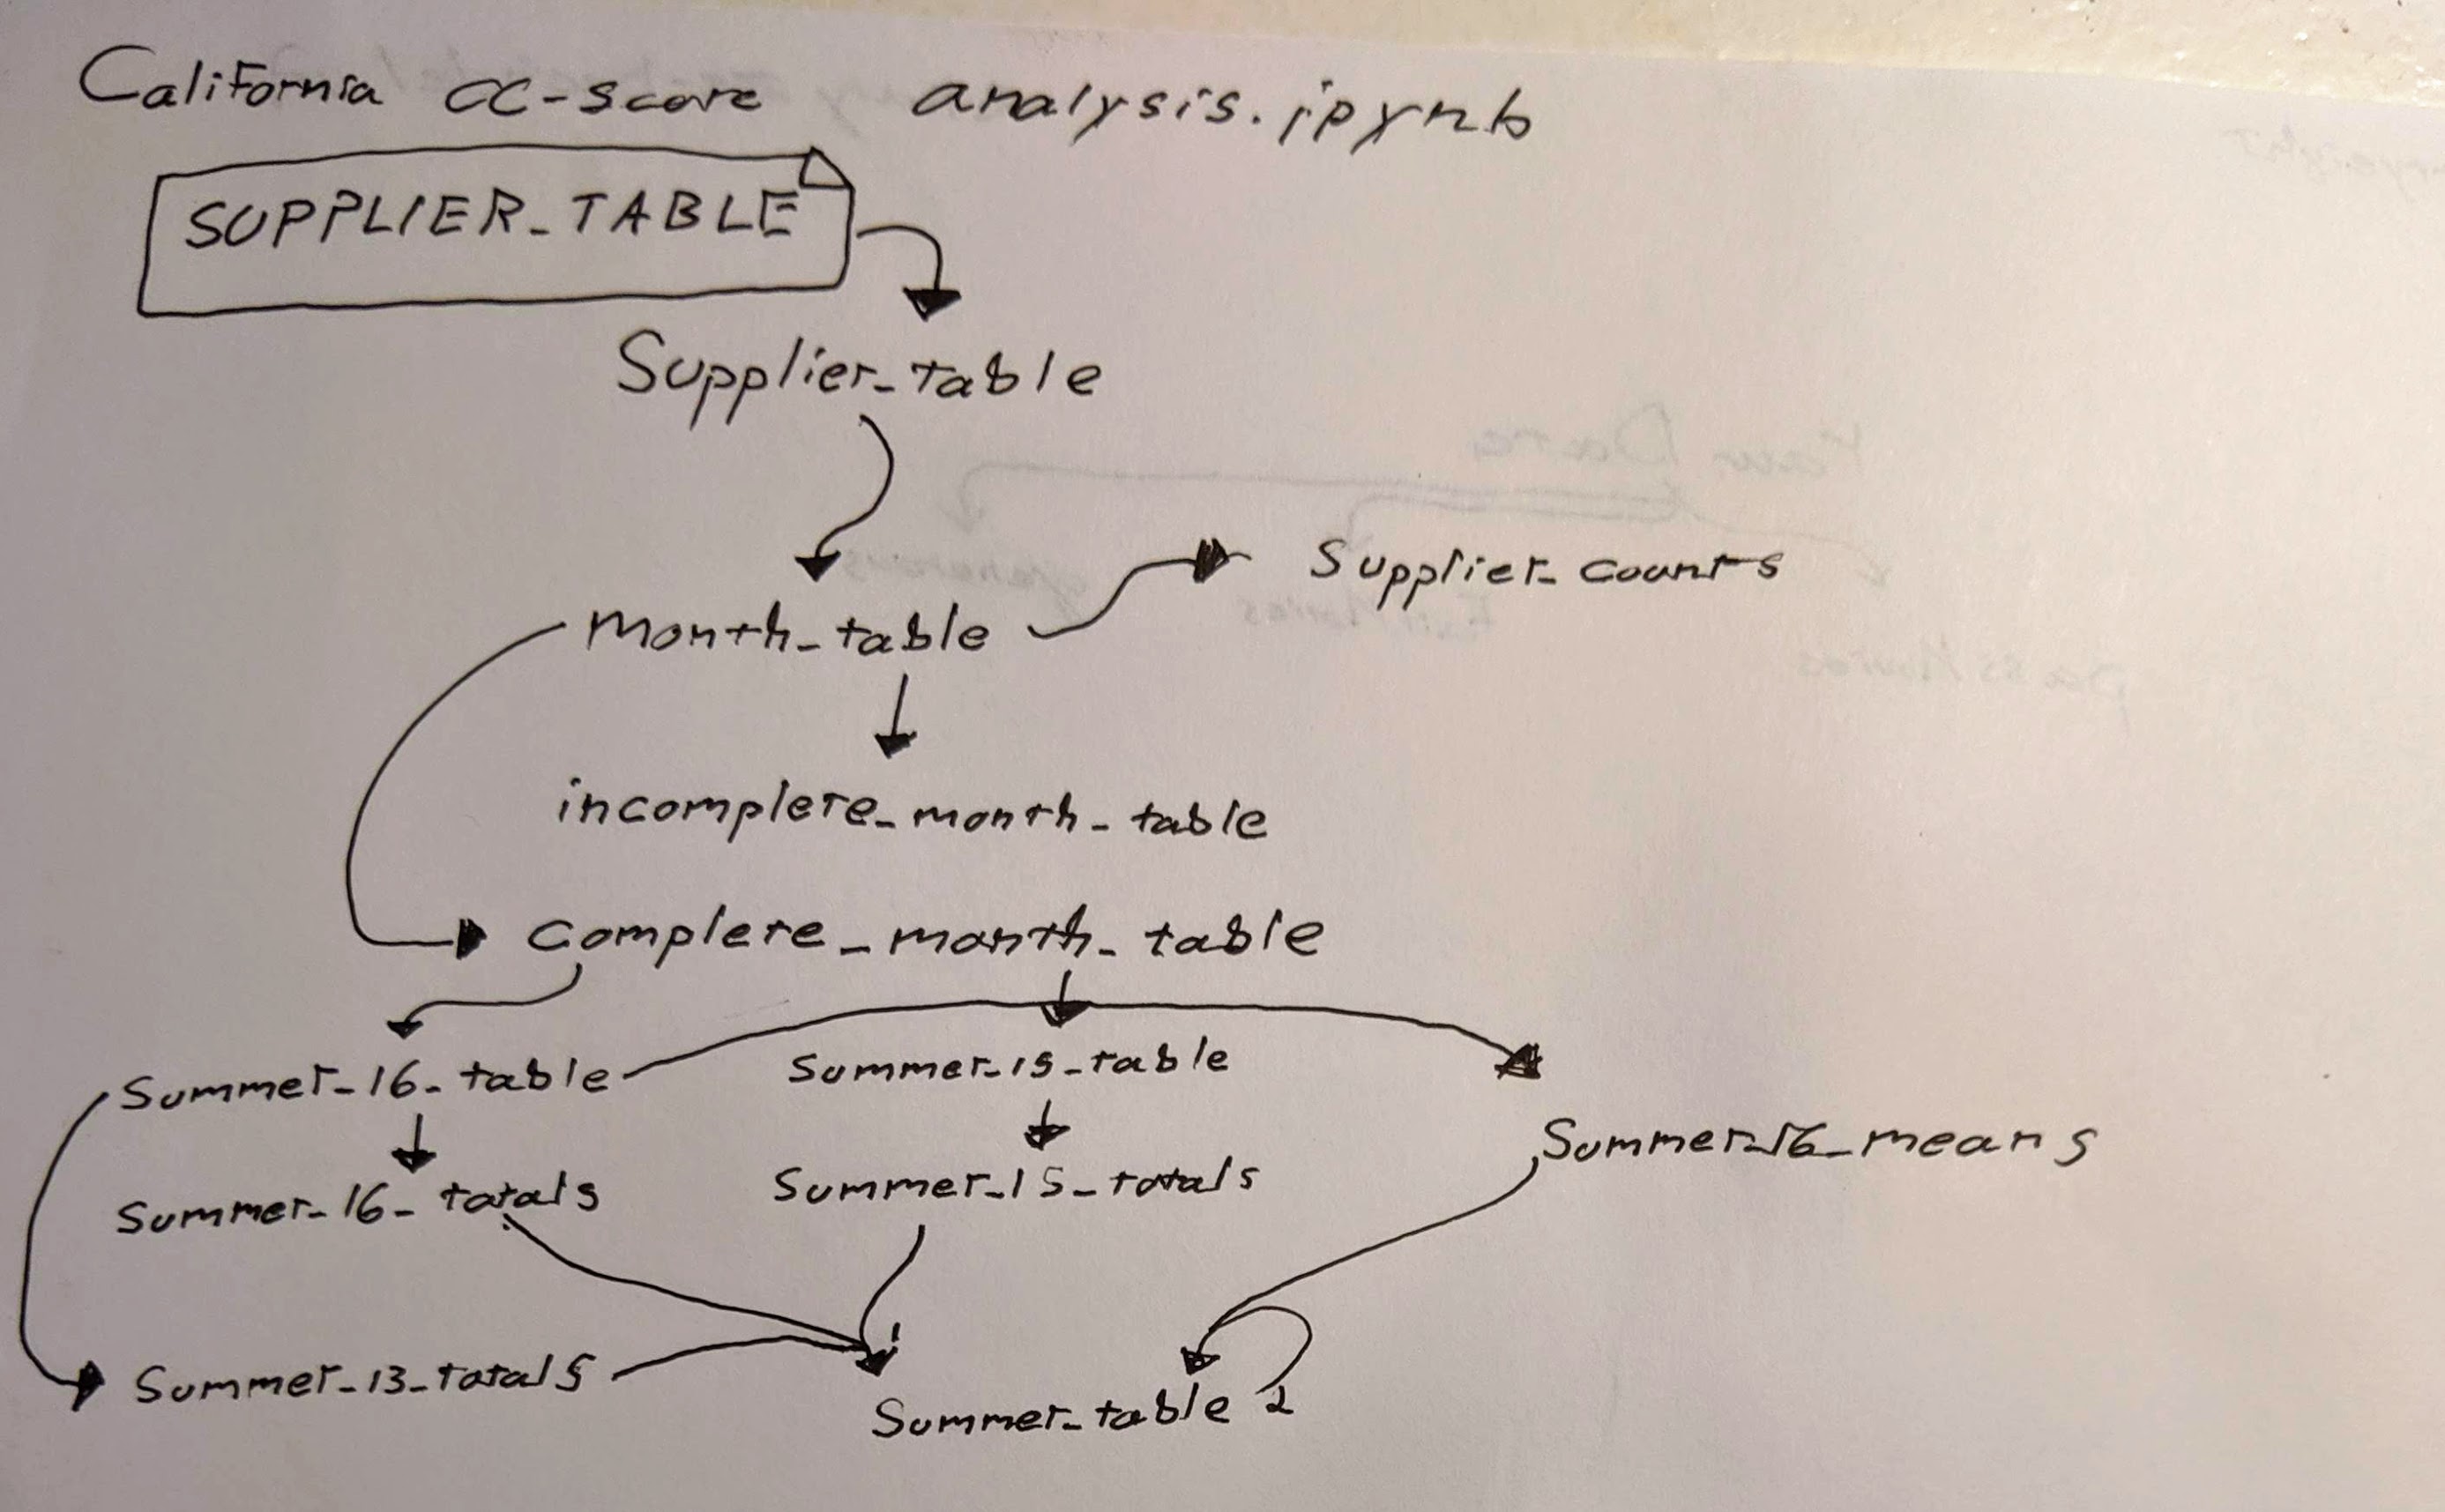 California CC-score analysis.ipynb
SUPPLIER_TABLE
Supplier_table
Supplier_counts
month_table
incomplete_month_table
complete_month_table
Summer_16_table
Summer_15_table
Summer_16_means
Summer_16_totals
Summer_15_totals
Summer_13_totals
Summer_table
1
2